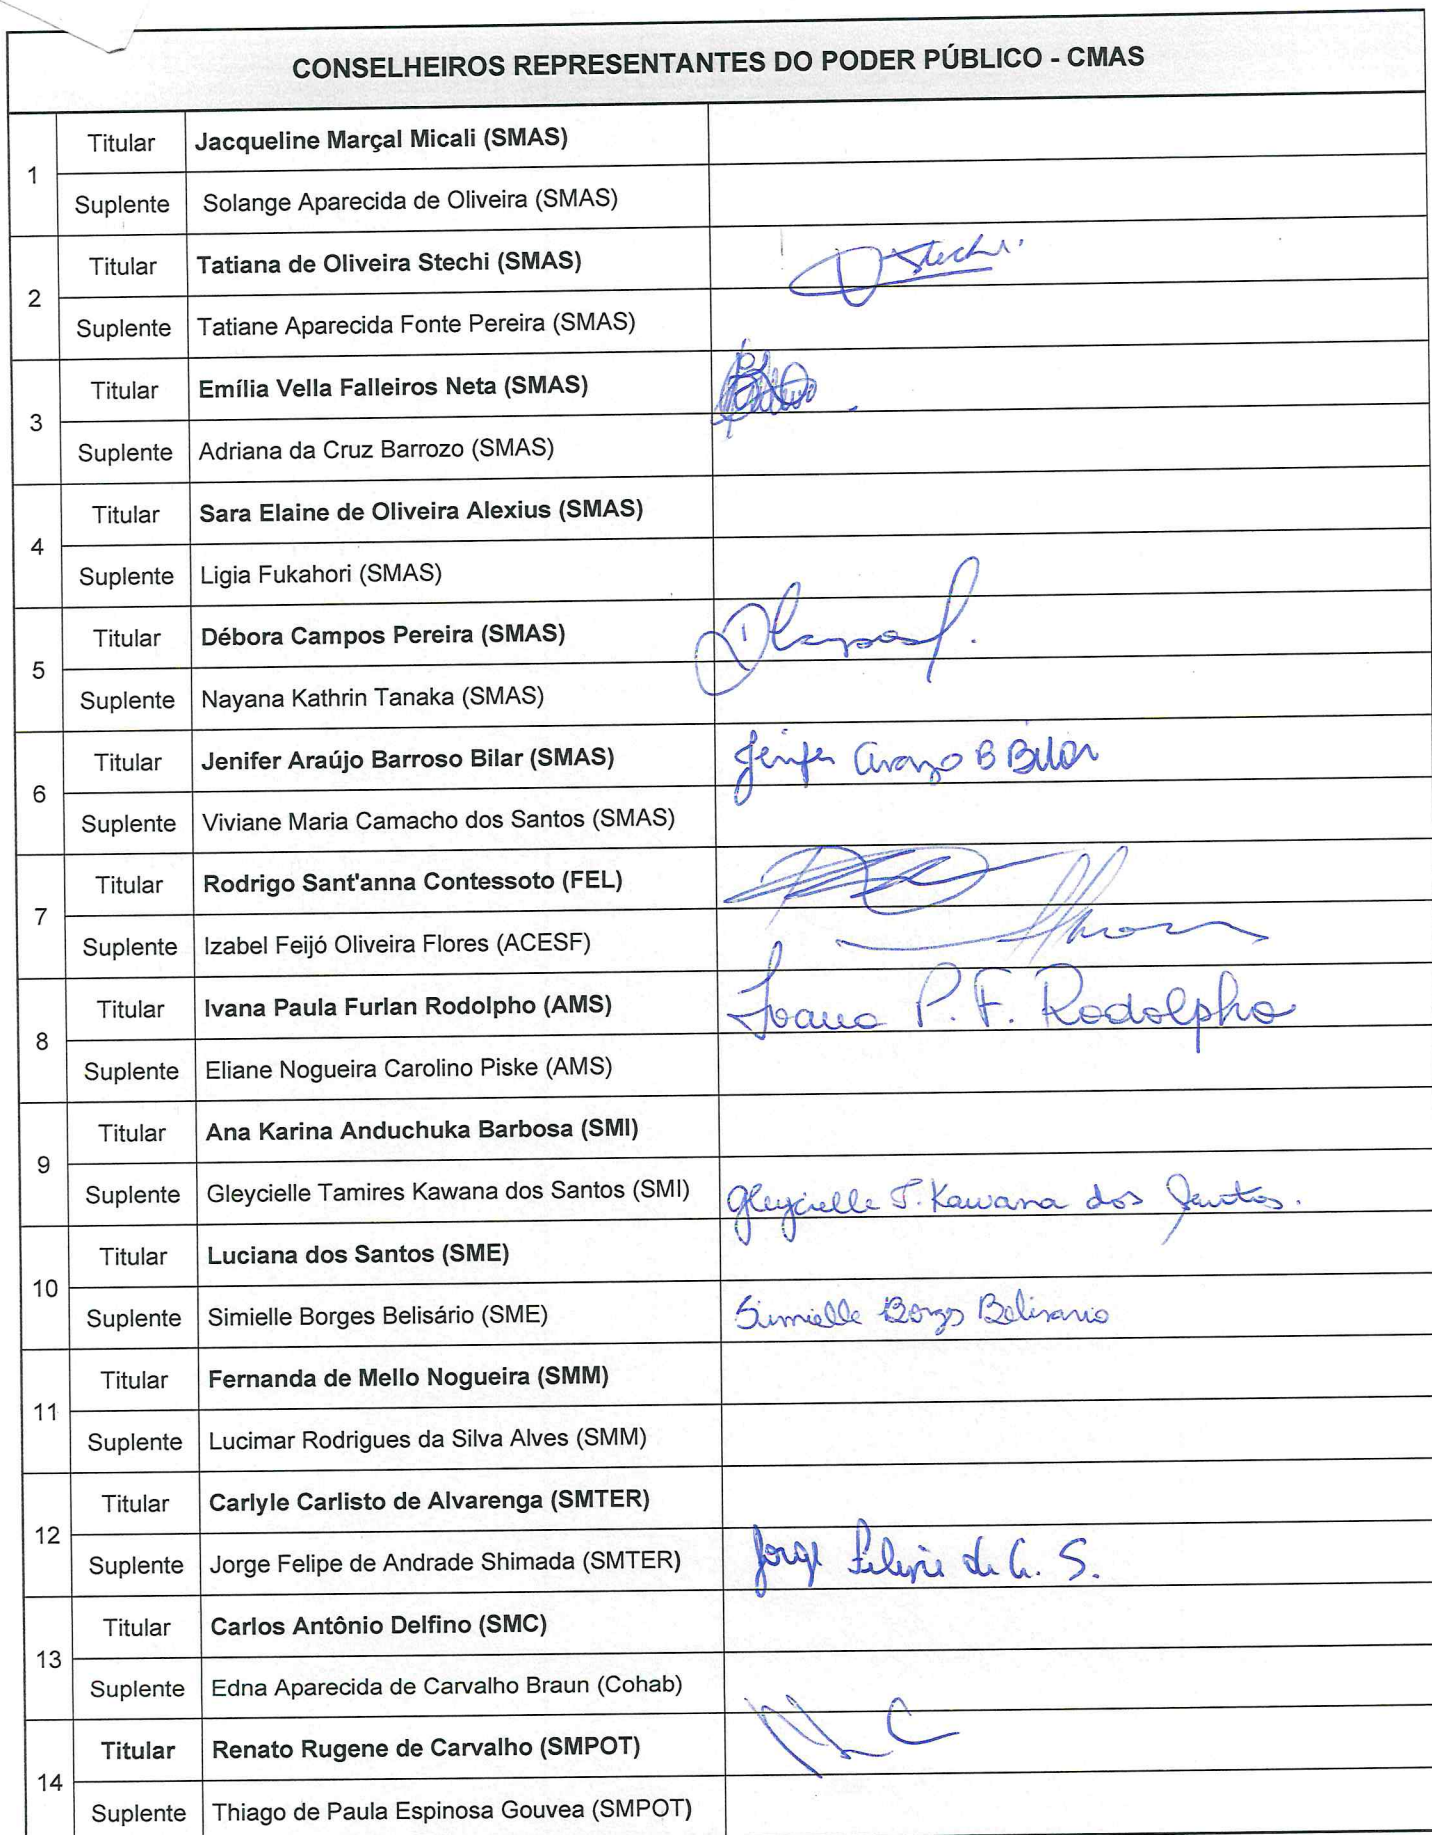 CONSELHEIROS REPRESENTANTES DO PODER PÚBLICO - CMAS
1
Titular Jacqueline Marçal Micali (SMAS)
Suplente Solange Aparecida de Oliveira (SMAS)
2
Titular Tatiana de Oliveira Stechi (SMAS) Stechi
Suplente Tatiane Aparecida Fonte Pereira (SMAS)
3
Titular Emília Vella Falleiros Neta (SMAS)
Suplente Adriana da Cruz Barrozo (SMAS)
4
Titular Sara Elaine de Oliveira Alexius (SMAS)
Suplente Ligia Fukahori (SMAS)
5
Titular Débora Campos Pereira (SMAS)
Suplente Nayana Kathrin Tanaka (SMAS)
6
Titular Jenifer Araújo Barroso Bilar (SMAS) Jenifer Araujo B Bilar
Suplente Viviane Maria Camacho dos Santos (SMAS)
7
Titular Rodrigo Sant'anna Contessoto (FEL)
Suplente Izabel Feijó Oliveira Flores (ACESF)
8
Titular Ivana Paula Furlan Rodolpho (AMS) Ivana P. F. Rodolpho
Suplente Eliane Nogueira Carolino Piske (AMS)
9
Titular Ana Karina Anduchuka Barbosa (SMI)
Suplente Gleycielle Tamires Kawana dos Santos (SMI) Gleycielle T. Kawana dos Santos.
10
Titular Luciana dos Santos (SME)
Suplente Simielle Borges Belisário (SME) Simielle Borges Belisario
11
Titular Fernanda de Mello Nogueira (SMM)
Suplente Lucimar Rodrigues da Silva Alves (SMM)
12
Titular Carlyle Carlisto de Alvarenga (SMTER)
Suplente Jorge Felipe de Andrade Shimada (SMTER) Jorge Felipe de A. S.
13
Titular Carlos Antônio Delfino (SMC)
Suplente Edna Aparecida de Carvalho Braun (Cohab)
14
Titular Renato Rugene de Carvalho (SMPOT)
Suplente Thiago de Paula Espinosa Gouvea (SMPOT)